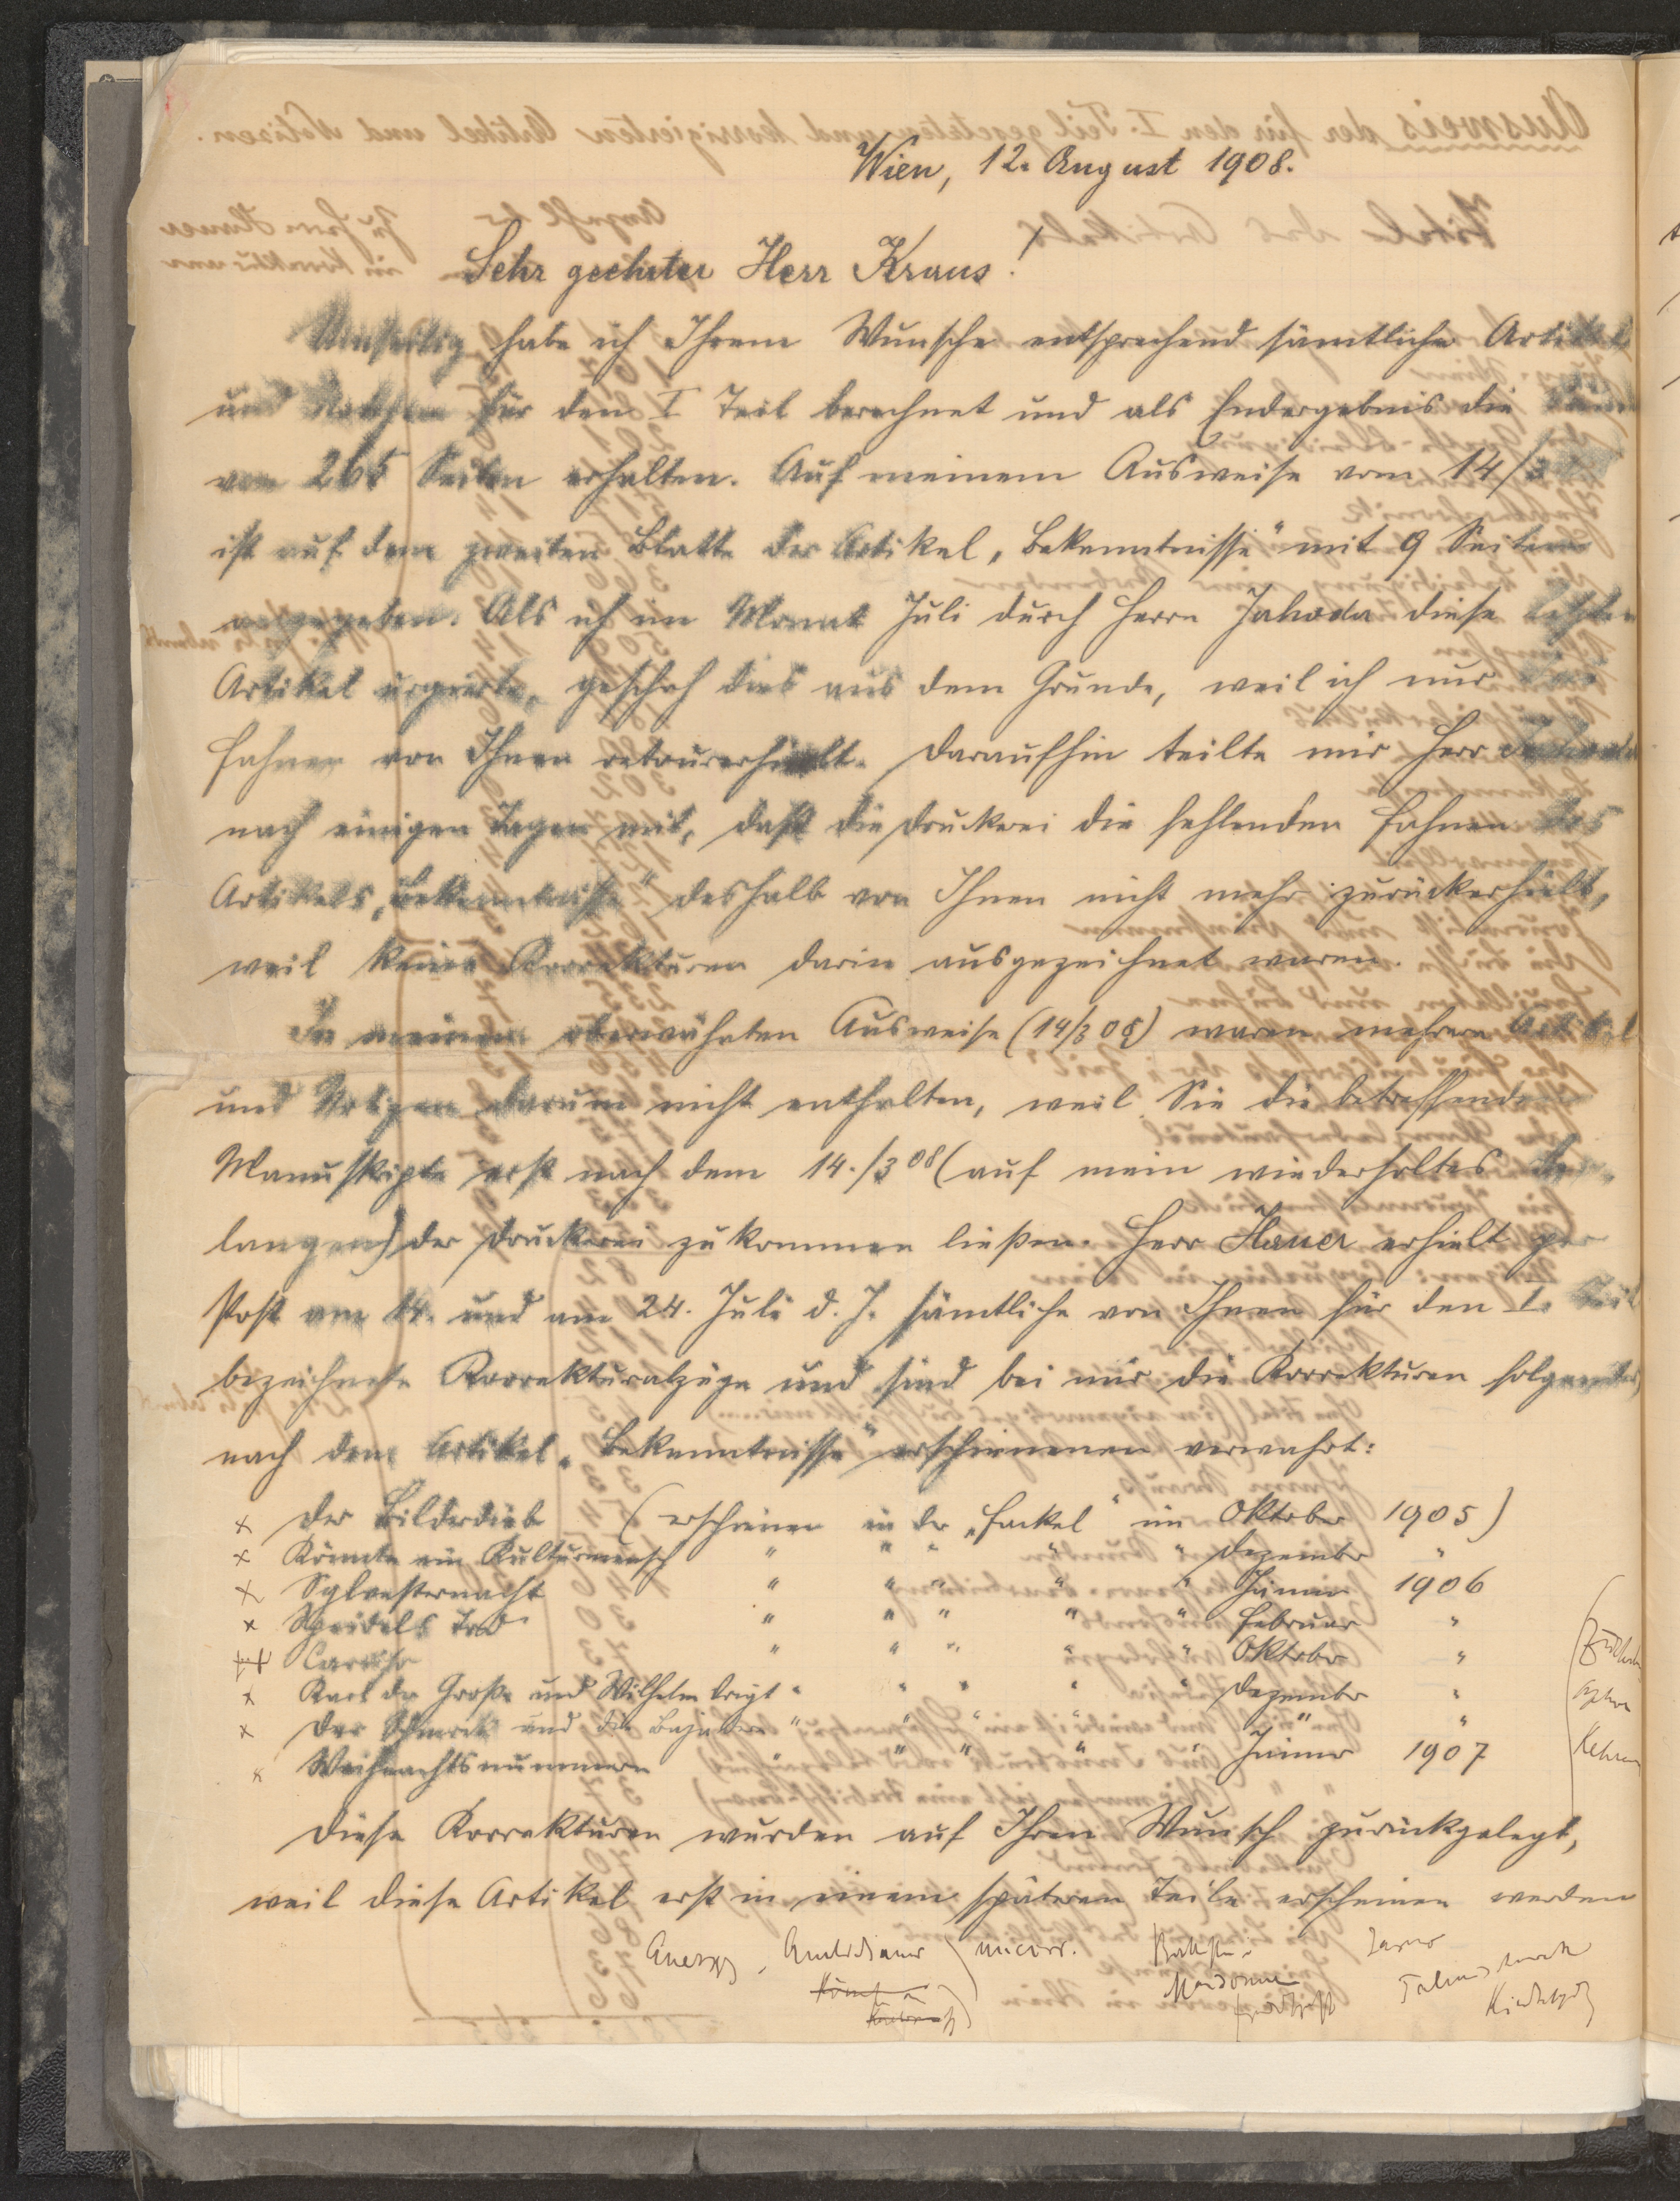 Wien, 12. August 1908.
Sehr geehrter Herr Kraus!
Umseitig habe ich Ihrem Wunsche entsprechend sämtliche Artikel
und Notizen für den I Teil berechnet und als Endergebnis die
von 265 Seiten erhalten. Auf meinem Ausweise vom 14/3
ist auf dem zweiten Blatte der Artikel „Bekenntnisse" mit 9 Seiten
angegeben. Als ich im Monat Juli durch Herrn Jahoda diese letzten
Artikel urgierte, geschah dies aus dem Grunde, weil ich nur
Fahnen von Ihnen retourerhielt. Daraufhin teilte mir Herr Jahoda
nach einigen Tagen mit, daß die Druckerei die fehlenden Fahnen des
Artikels „Bekenntnisse" deshalb von Ihnen nicht mehr zurückerhielt,
weil keine Korrekturen darin ausgezeichnet waren.
In meinem oberwähnten Ausweise (14/3 08) waren mehrere Artikel
und Notizen darum nicht enthalten, weil Sie die betreffenden
Manuskripte erst nach dem 14./3 08 (auf mein wiederholtes Ver-
langen) der Druckerei zukommen ließen. Herr Hauer erhielt per
Post am 14. und am 24. Juli d. J. sämtliche von Ihnen für den I. Teil
bezeichnete Korrekturabzüge und sind bei mir die Korrekturen folgender,
nach dem Artikel „Bekenntnisse" erschienenen verwahrt:
x Der Bilderdieb (erschienen in der „Fackel" im Oktober 1905)
x Könnte ein Kulturmensch " " " " " Dezember "
x Sylvesternacht " " " " " Jänner 1906
x Speidels Tod " " " " " Februar "
x Caruso " " " " " Oktober "
x Karl der Große und Wilhelm Voigt " " " " " Dezember "
x Der Schmock und die Bajadere " " " " " " "
x Weihnachtsnummern " " " " " Jänner 1907
Diese Korrekturen wurden auf Ihren Wunsch zurückgelegt,
weil diese Artikel erst in einem späteren Teile erscheinen werden